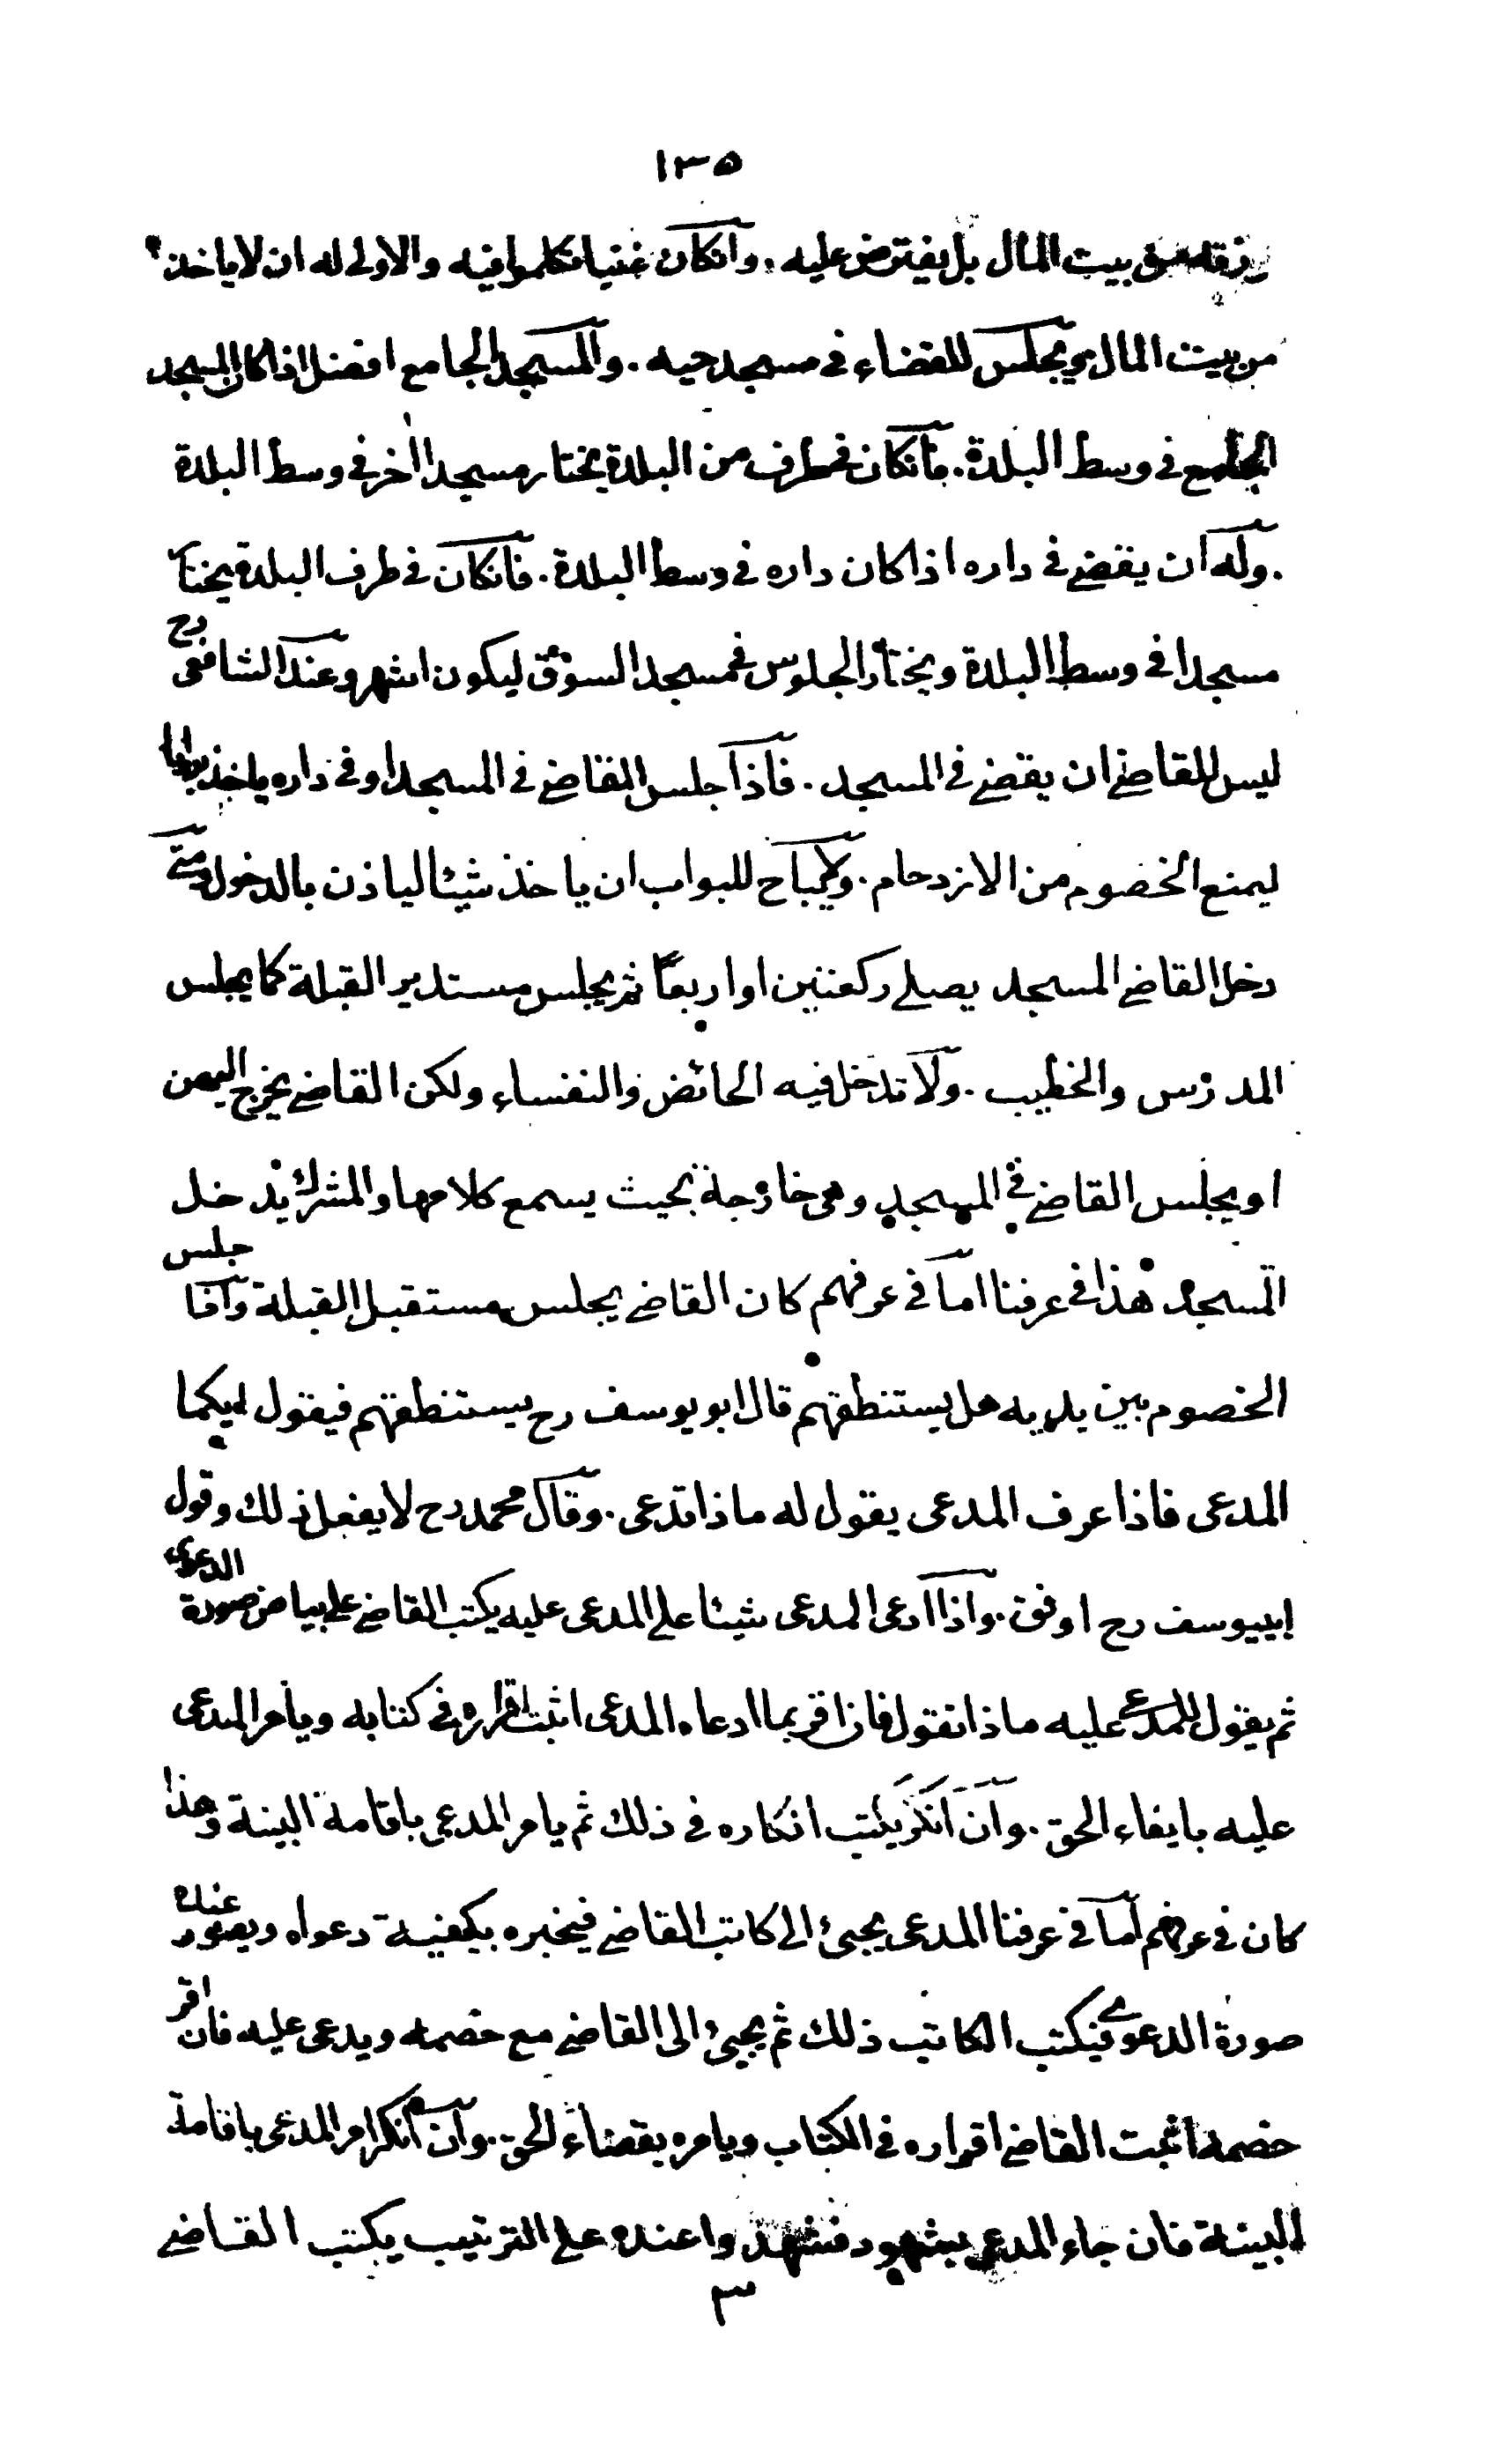 ١٣٥
رزقه من بيت المال بل يفترض عليه . وانكان غنيا تكلموا فيه والاولى له ان لا ياخذ
من بيت المال ويجلس للقضاء في مسجد حيه . والمسجد الجامع افضل اذا كان المسجد
الجامع في وسط البلدة . فانكان في طرف من البلدة يختار مسجدا اخر في وسط البلدة
. وله ان يقضي في داره اذا كان داره في وسط البلدة . فانكان في طرف البلدة يختار
مسجدا في وسط البلدة ويختار الجلوس في مسجد السوق ليكون اشهر وعند الشافعي رح
ليس للقاضي ان يقضي في المسجد . فاذا جلس القاضي في المسجد او في داره ياخذ بوابا
ليمنع الخصوم من الازدحام . ولا يباح للبواب ان ياخذ شيئا لياذن بالدخول ومتى
دخل القاضي المسجد يصلي ركعتين او اربعا ثم يجلس مستدبر القبلة كما يجلس
المدرس والخطيب . ولا تدخل فيه الحائض والنفساء ولكن القاضي يخرج اليهن
او يجلس القاضي في المسجد وهي خارجة بحيث يسمع كلامها والمشرك يدخل
المسجد هذا في عرفنا اما في عرفهم كان القاضي يجلس مستقبل القبلة واذا جلس
الخصوم بين يديه هل يستنطقهم قال ابو يوسف رح يستنطقهم فيقول ايكما
المدعى فاذا عرف المدعى يقول له ماذا تدعى . وقال محمد رح لا يفعل ذلك وقول
ابييوسف رح اوفق . واذا ادعى المدعى شيئا على المدعى عليه يكتب القاضي على بياض صورة الدعوى
ثم يقول للمدعى عليه ماذا تقول فان اقر بما ادعاه المدعى اثبت اقراره في كتابه ويأمر المدعى
عليه بايفاء الحق . وان انكر يكتب انكاره في ذلك ثم يامر المدعى باقامة البينة وهذا
كان في عرفهم اما في عرفنا المدعى يجيئ الى كاتب القاضي فيخبره بكيفية دعواه ويصور عنده
صورة الدعوى فيكتب الكاتب ذلك ثم يجيئ الى القاضي مع خصمه ويدعى عليه فان اقر
خصمه اثبت القاضي اقراره في الكتاب ويامره بقضاء الحق . وان انكر امر المدعى باقامة
البينة فان جاء المدعى بشهود فشهدوا عنده على الترتيب يكتب القاضي
٣